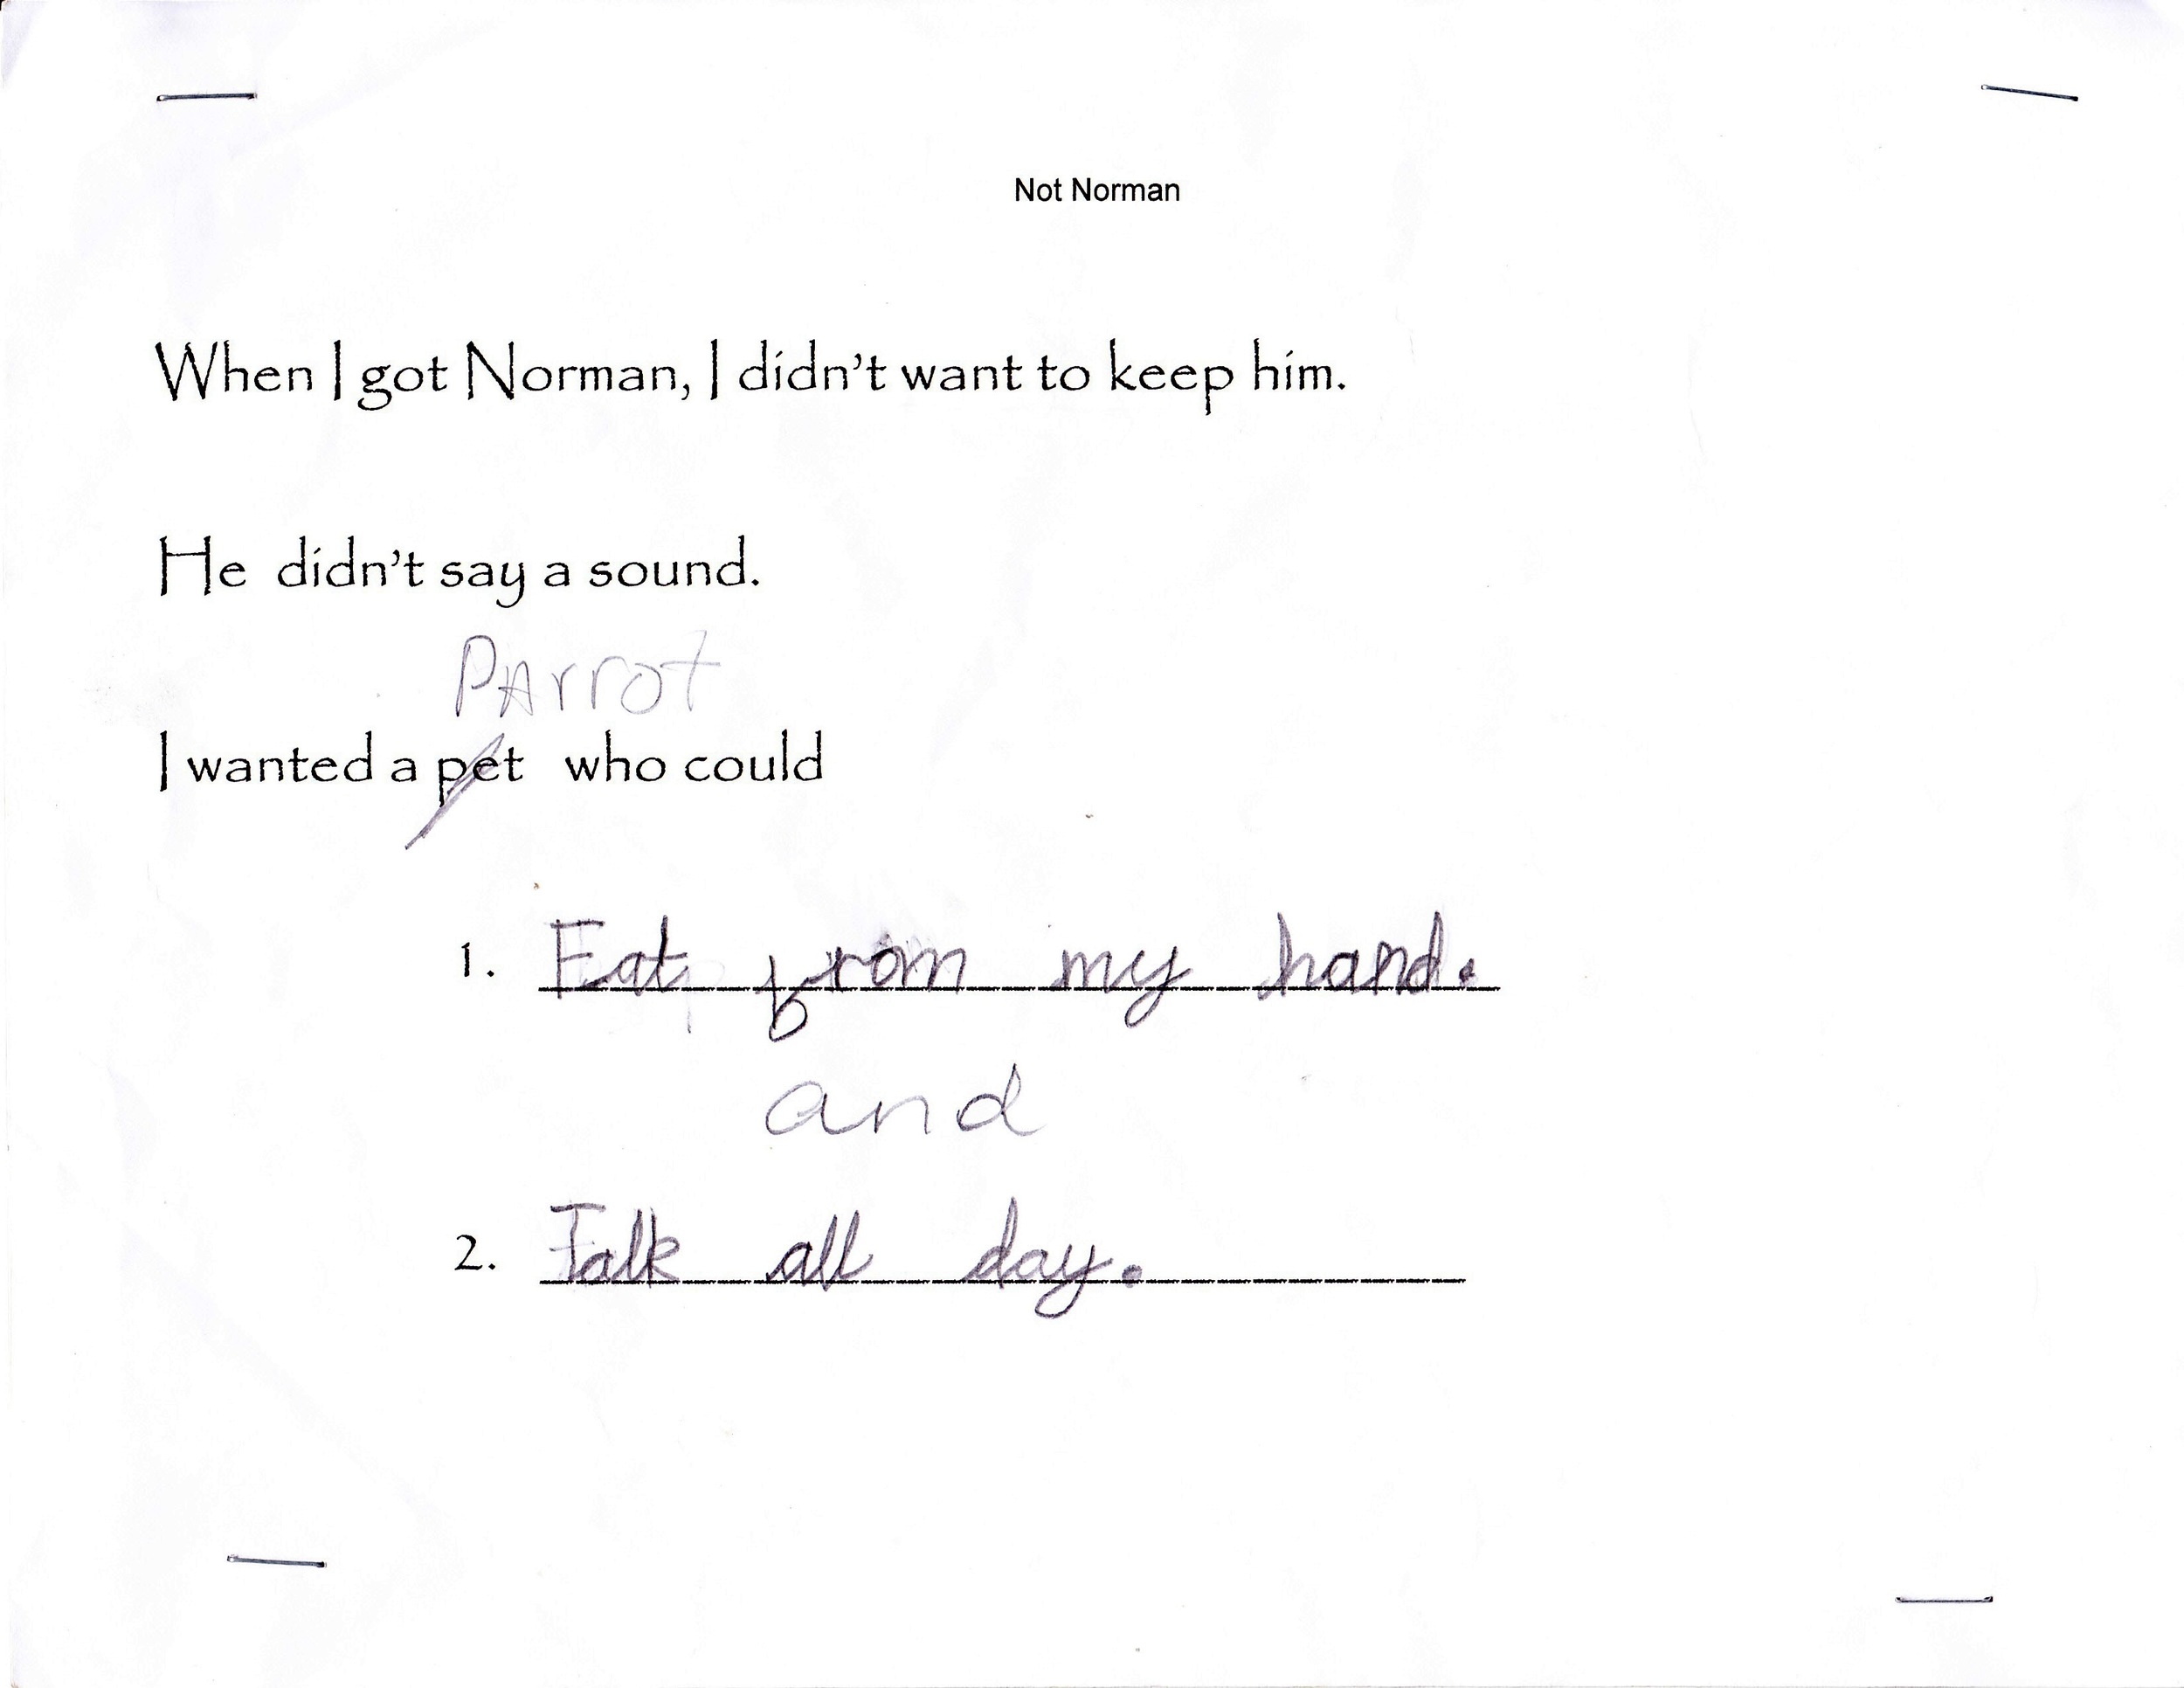 Not Norman
When I got Norman, I didn't want to keep him.
He didn't say a sound.
PArrot
I wanted a pet who could
1. Eat from my hand.
and
2. Talk all day.